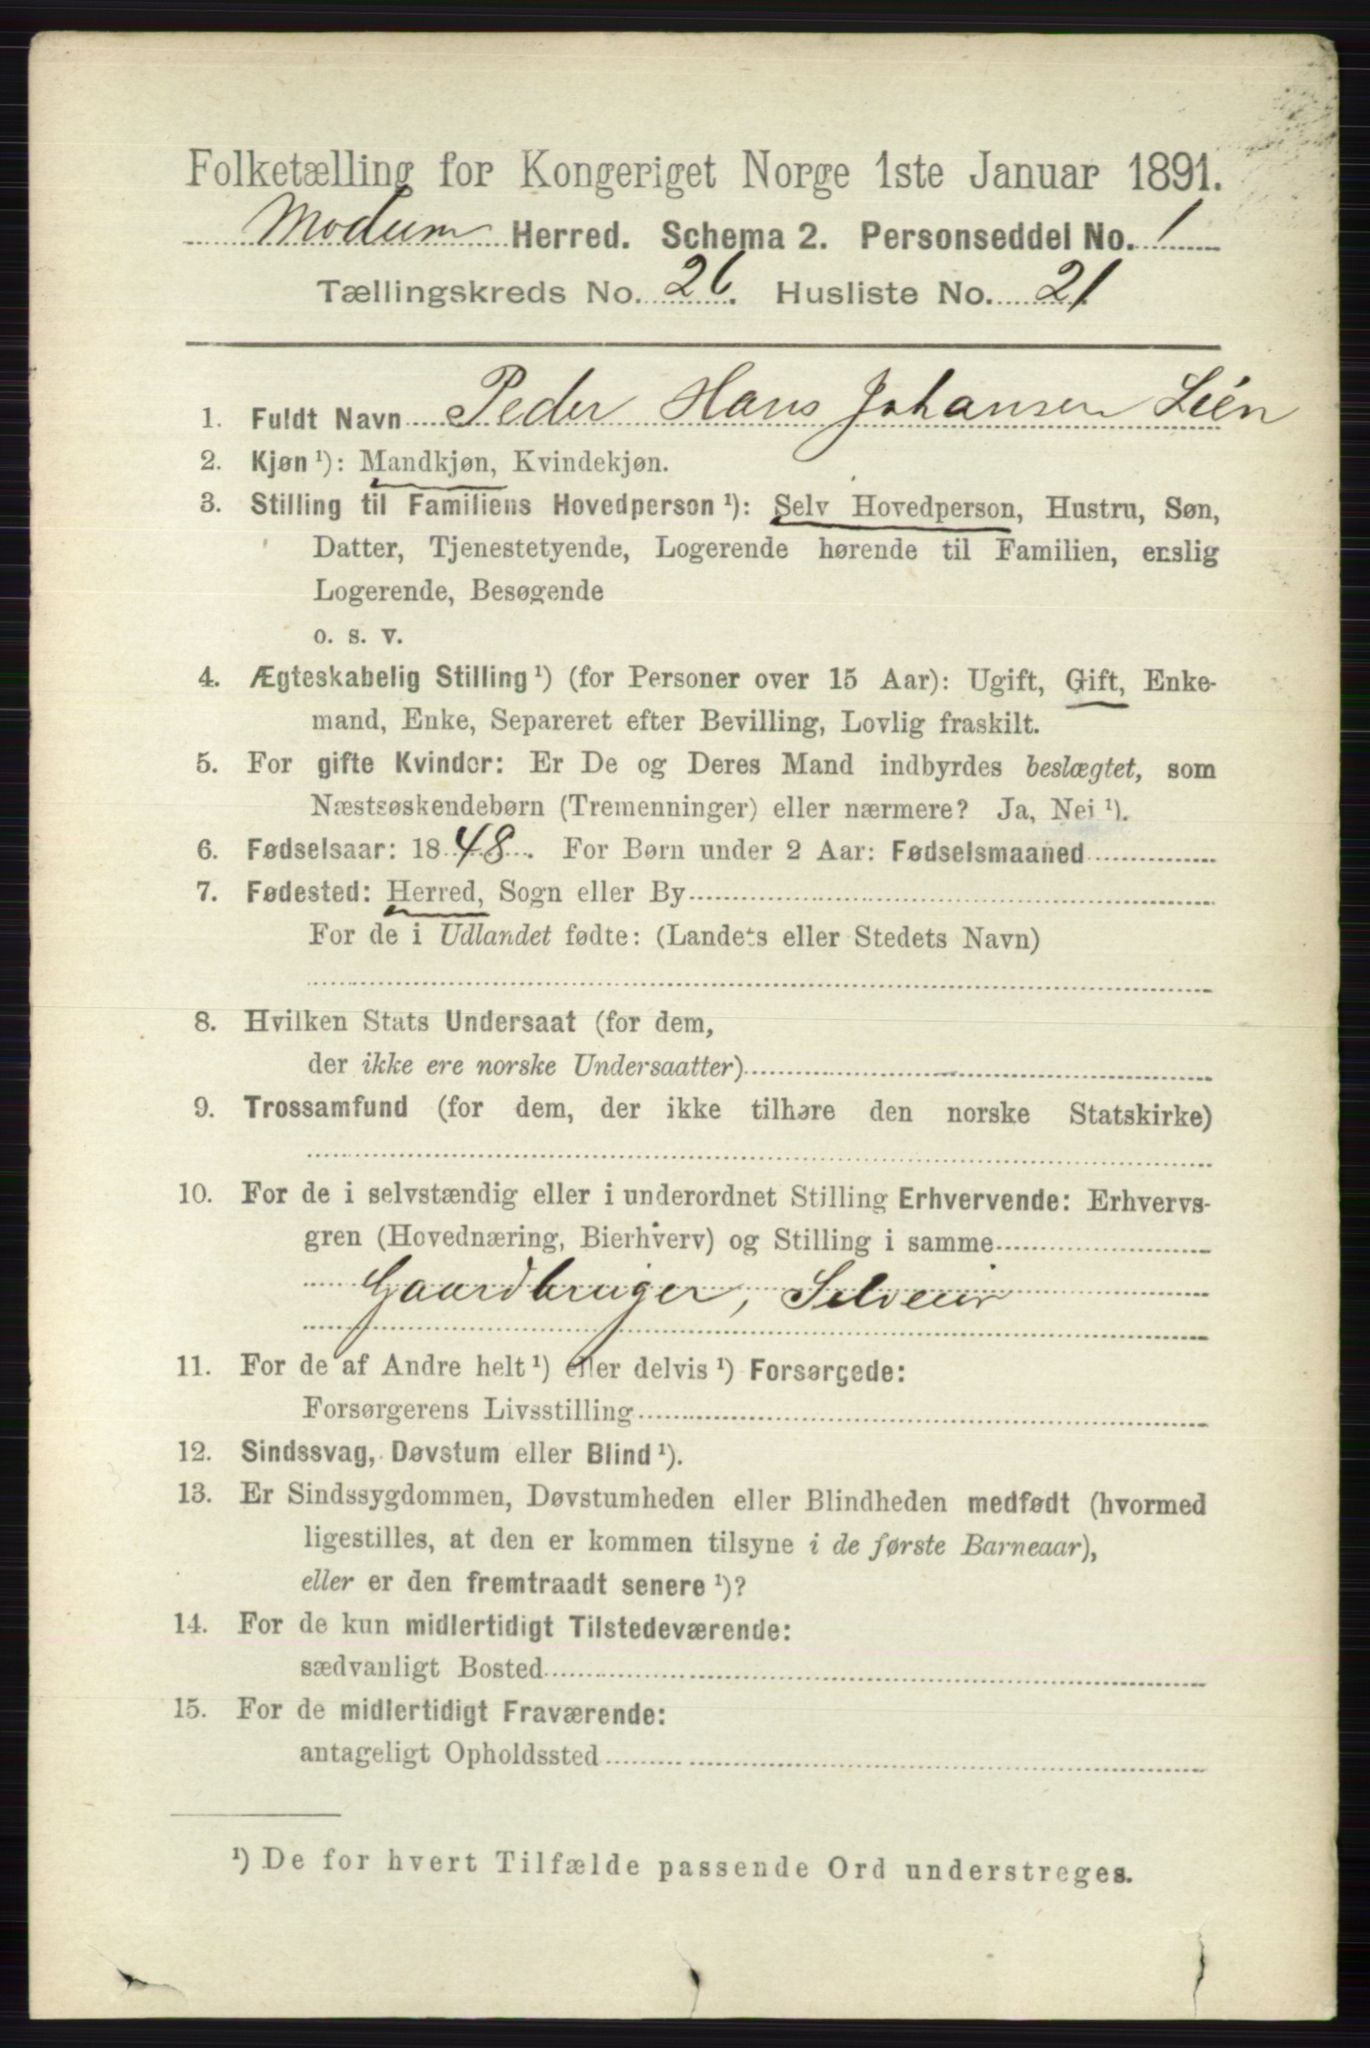 Folketælling for Kongeriget Norge 1ste Januar 1891.
Modum Herred. Schema 2. Personseddel No. 1
Tællingskreds No. 26. Husliste No. 21.
1. Fuldt Navn Peder Hans Johansen Lién
2. Kjøn ¹): Mandkjøn, Kvindekjøn.
3. Stilling til Familiens Hovedperson ¹): Selv Hovedperson, Hustru, Søn,
Datter, Tjenestetyende, Logerende hørende til Familien, enslig
Logerende, Besøgende
o. s. v.
4. Ægteskabelig Stilling ¹) (for Personer over 15 Aar): Ugift, Gift, Enke-
mand, Enke, Separeret efter Bevilling, Lovlig fraskilt.
5. For gifte Kvinder: Er De og Deres Mand indbyrdes beslægtet, som
Næstsøskendebørn (Tremenninger) eller nærmere? Ja, Nei ¹).
6. Fødselsaar: 1848. For Børn under 2 Aar: Fødselsmaaned
7. Fødested: Herred, Sogn eller By
For de i Udlandet fødte: (Landets eller Stedets Navn)
8. Hvilken Stats Undersaat (for dem,
der ikke ere norske Undersaatter)
9. Trossamfund (for dem, der ikke tilhøre den norske Statskirke)
10. For de i selvstændig eller i underordnet Stilling Erhvervende: Erhvervs-
gren (Hovednæring, Bierhverv) og Stilling i samme
Gaardbruger, Selveier
11. For de af Andre helt ¹) eller delvis ¹) Forsørgede:
Forsørgerens Livsstilling
12. Sindssvag, Døvstum eller Blind ¹).
13. Er Sindssygdommen, Døvstumheden eller Blindheden medfødt (hvormed
ligestilles, at den er kommen tilsyne i de første Barneaar),
eller er den fremtraadt senere ¹)?
14. For de kun midlertidigt Tilstedeværende:
sædvanligt Bosted
15. For de midlertidigt Fraværende:
antageligt Opholdssted
¹) De for hvert Tilfælde passende Ord understreges.